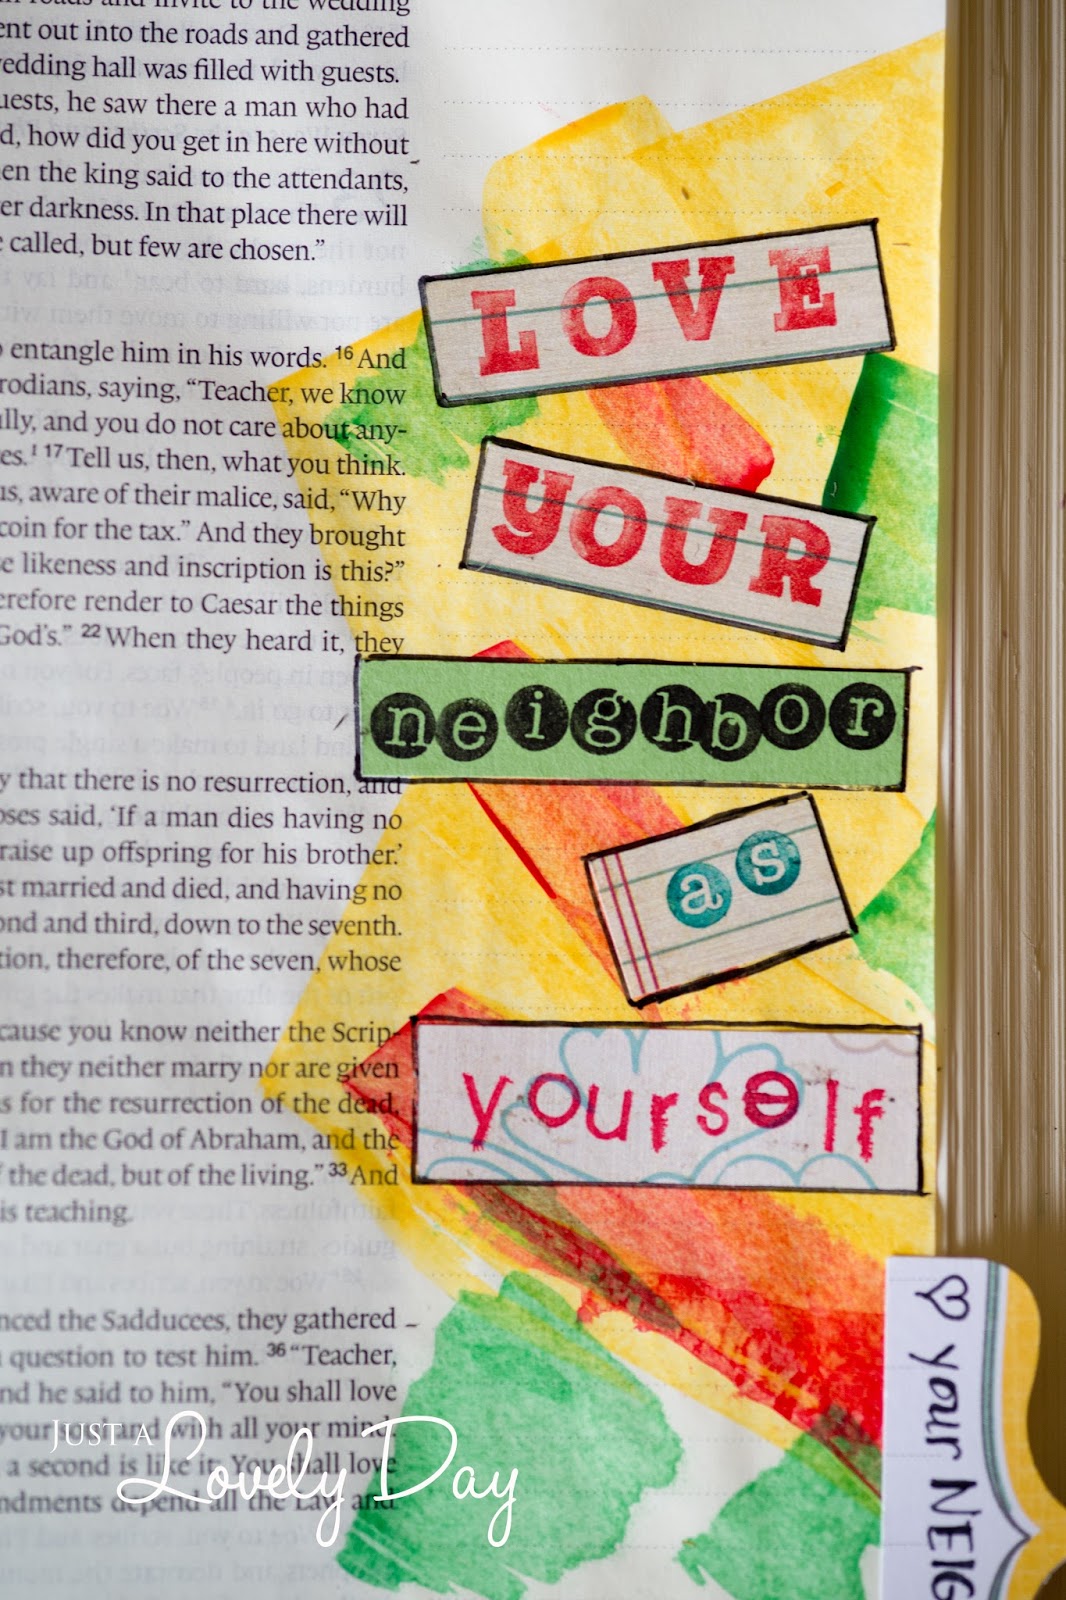 roads and invite to the wedding
ent out into the roads and gathered
edding hall was filled with guests.
uests, he saw there a man who had
d, how did you get in here without
en the king said to the attendants,
er darkness. In that place there will
e called, but few are chosen.”
o entangle him in his words. 16 And
rodians, saying, “Teacher, we know
ully, and you do not care about any-
es.l 17 Tell us, then, what you think.
us, aware of their malice, said, “Why
coin for the tax.” And they brought
e likeness and inscription is this?”
erefore render to Caesar the things
God's.” 22 When they heard it, they
y that there is no resurrection, and
oses said, ‘If a man dies having no
raise up offspring for his brother.’
st married and died, and having no
ond and third, down to the seventh.
tion, therefore, of the seven, whose
cause you know neither the Scrip-
n they neither marry nor are given
s for the resurrection of the dead,
I am the God of Abraham, and the
f the dead, but of the living.” 33 And
is teaching.
nced the Sadducees, they gathered
a question to test him. 36 “Teacher,
nd he said to him, “You shall love
your soul and with all your mind.
a second is like it: You shall love
ndments depend all the Law and
LOVE
YOUR
neighbor
as
yourself
♡ your NEIG
JUST A
Lovely Day